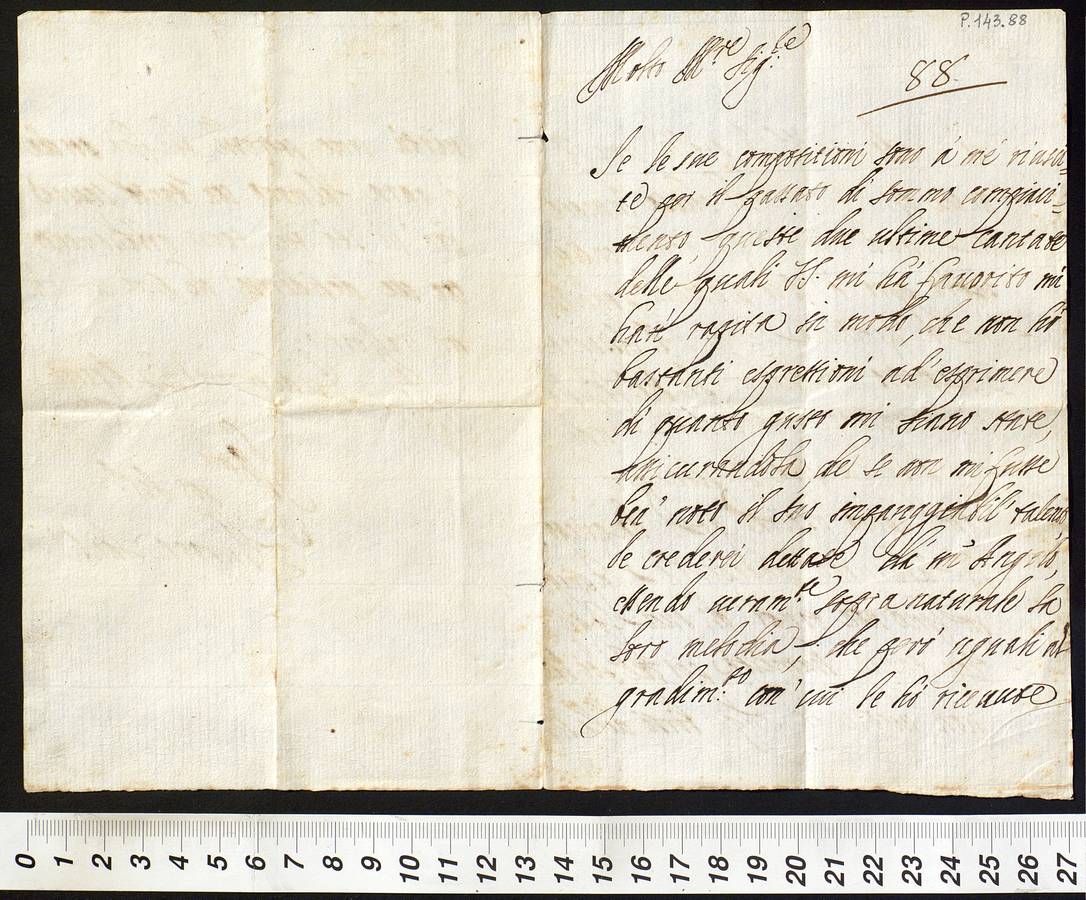 P.143.88
Molto Ill.re Sig.re
88.
Se le sue compositioni sono à mé riusci=
te per il passato di sommo compiaci=
mento queste due ultime Cantate
delle quali V.S. mi há favorito mi
han' rapita in modo, che non hó
bastanti espressioni ad' esprimere
di quanto gusto mi siano state,
assicurandola, che se non mi fusse
ben' noto il suo impareggiabil' talento
le crederei dettate da un' Angelo,
essendo veram.te sopra naturale la
loro melodia, che peró uguali al
gradim.to con' cui le hó ricevute
0 1 2 3 4 5 6 7 8 9 10 11 12 13 14 15 16 17 18 19 20 21 22 23 24 25 26 27